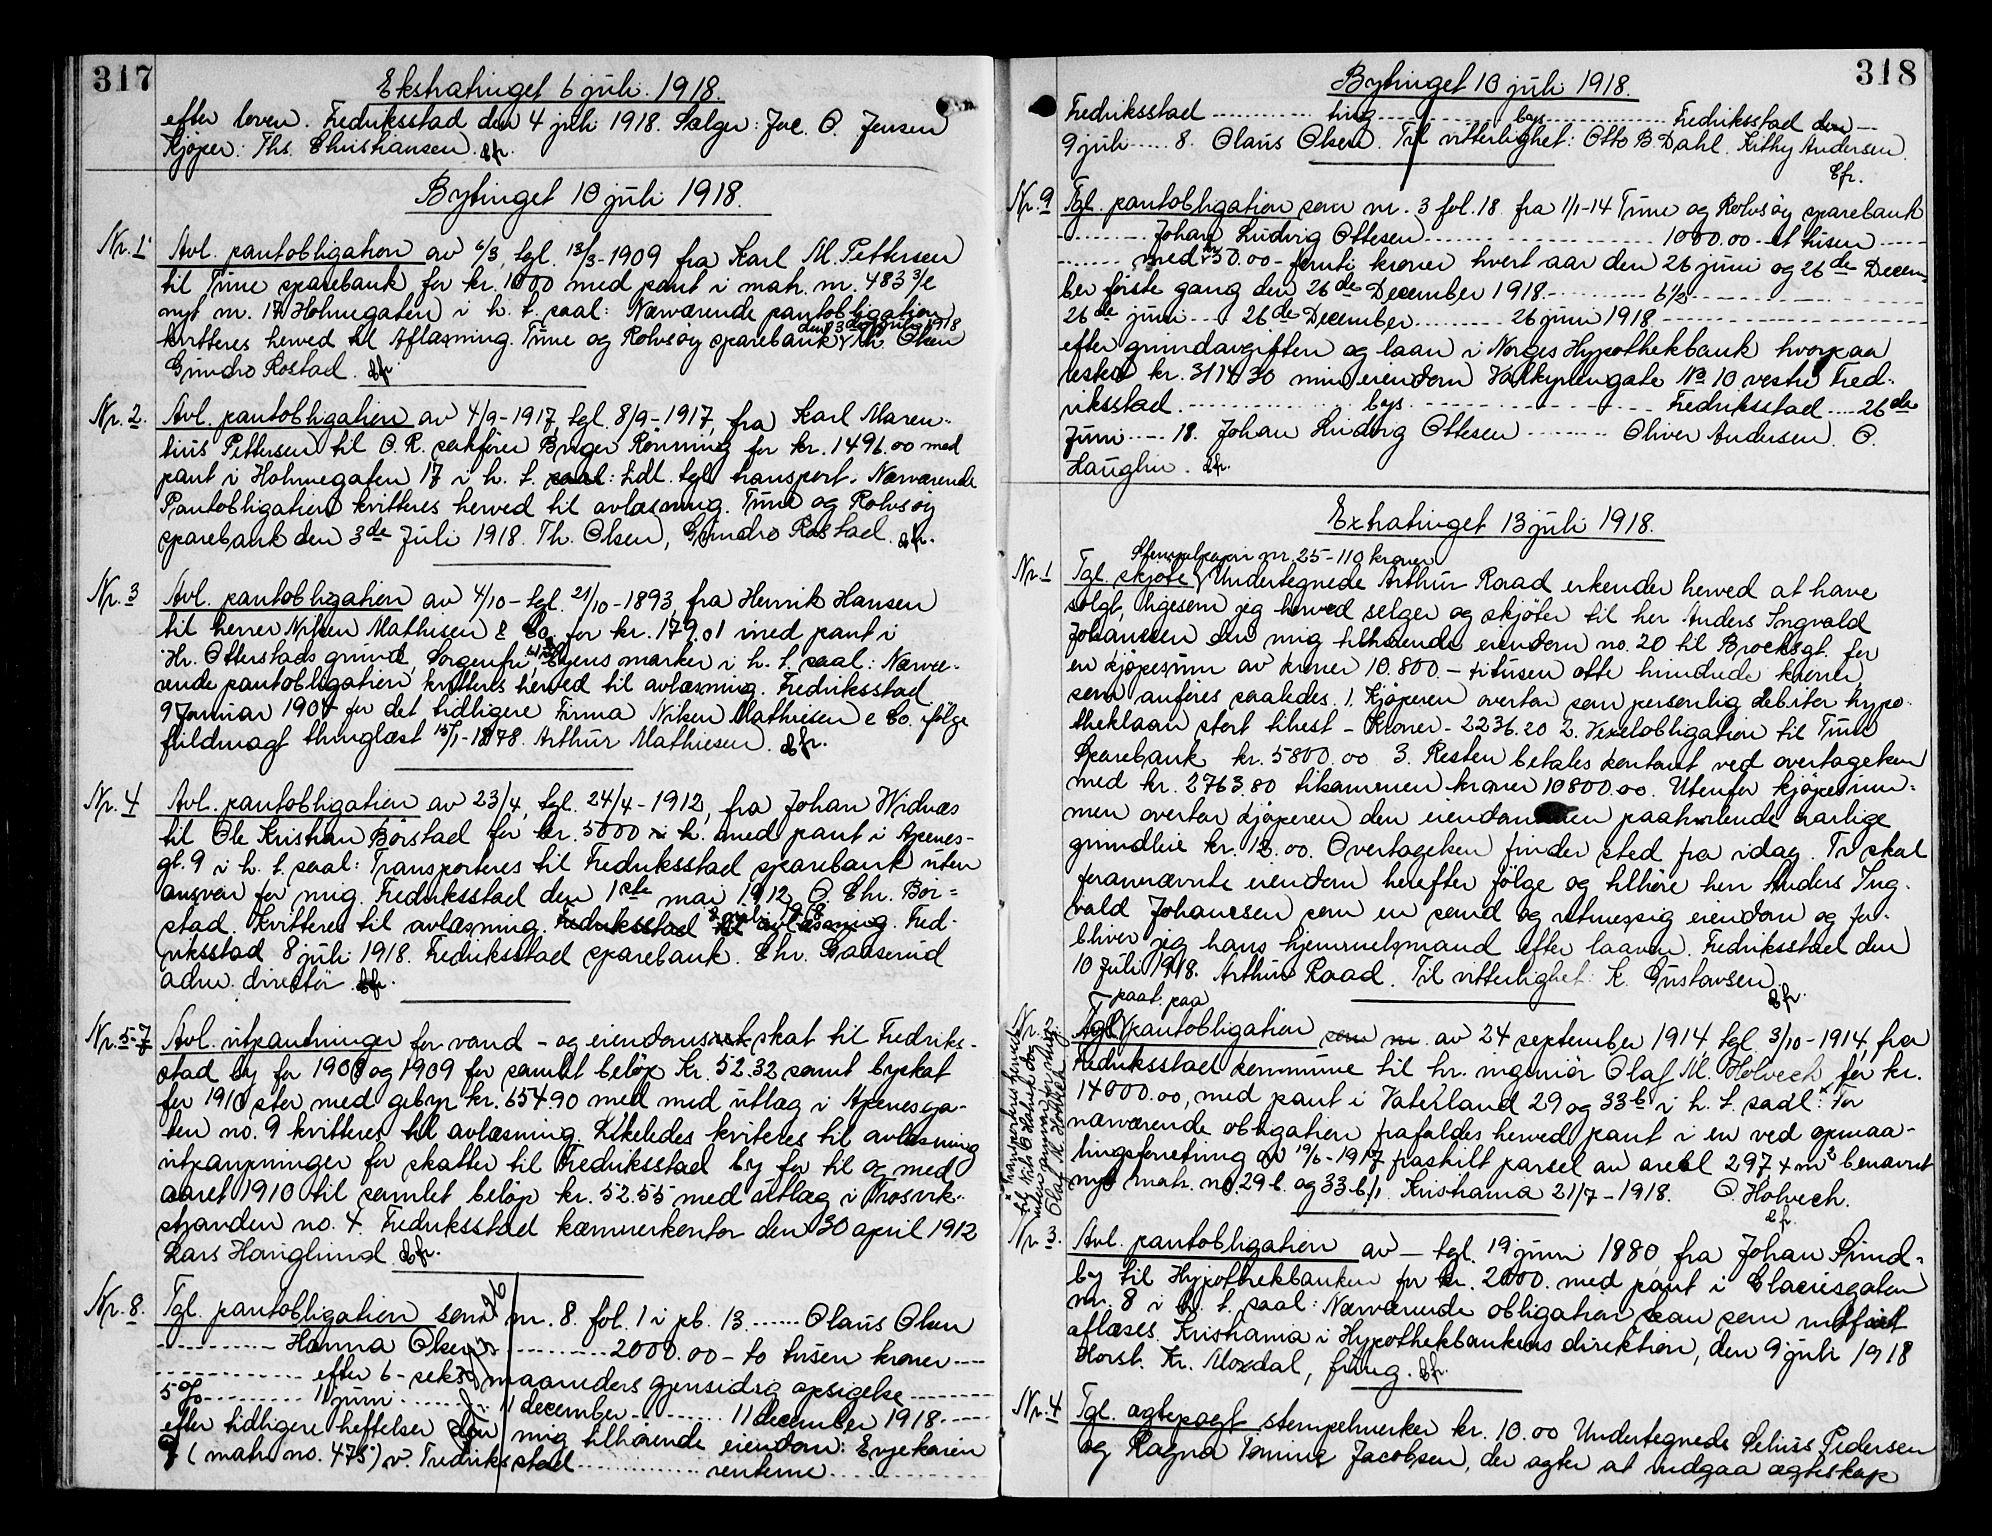 317
Ekstratinget 6 juli 1918.
efter loven. Fredriksstad den 4 juli 1918. Sælger: Joe. O. Jensen
Kjøper: Ths. Christiansen.
Bytinget 10 juli 1918.
Nr. 1. Avl. pantobligation av 6/3, tgl. 13/3-1909 fra Karl M. Pettersen
til Tune sparebank for kr. 1000 med pant i matr. nr. 483 3/e
nyt nr. 17 Holmegaten i h. t. saal: Nærværende pantobligation
kvitteres herved til Aflæsning. Tune og Rolvsøy sparebank den 3de juli 1918 Th Olsen
Gundro Rostad.
Nr. 2. Avl. pantobligation av 4/9-1917, tgl. 8/9-1917, fra Karl Maren-
tius Pettersen til O. R. sakfører Birger Rønning for kr. 1496.00 med
pant i Holmegaten 17 i h. t. saal: tidl. tgl. transport. Nærværende
Pantobligation kvitteres herved til avlæsning. Tune og Rolvsøy
sparebank den 3de Juli 1918. Th. Olsen, Gundro Rostad.
Nr. 3 Avl. pantobligation av 4/10 - tgl. 21/10-1893, fra Henrik Hansen
til herrer Nilsen Mathisen & Co. for kr. 179.01 med pant i
Hr. Otterstads grund, Sorgenfri, Byens marker i h. t. saal: Nærvæ-
rende pantobligation kvitteres herved til avlæsning. Fredriksstad
9 Januar 1904 for det tidligere Firma Nilsen Mathiesen & Co. ifølge
fuldmagt thinglæst 15/1-1878. Arthur Mathiesen.
Nr. 4 Avl. pantobligation av 23/4, tgl. 24/4-1912, fra Johan Widnæs
til Ole Kristian Børstad for kr. 5000 i h. med pant i Apenes-
gt. 9 i h. t. saal: Transporteres til Fredriksstad sparebank uten
ansvar for mig. Fredriksstad den 1ste mai 1912 O. Chr. Bor=
stad. Kvitteres til avlæsning. Fredriksstad 8 juli 1918 til avlæsning. Fred-
riksstad 8 juli 1918. Fredriksstad sparebank. Chr. Gaaserud
adm. direktør.
Nr. 5-7 Avl. utpantninger for vand- og eiendomsskat til Fredriks-
stad by for 1908 og 1909 for samlet beløp Kr. 52.32 samt byskat
for 1910 stor med gebyr kr. 654.90 med utlæg i Apenesga-
ten no. 9 kvitteres til avlæsning. Likeledes kviteres til avlæsning
utpantninger for skatter til Fredriksstad by for til og med
aaret 1910 til samlet beløp kr. 52.55 med utlæg i Trosvik-
stranden no. 4. Fredriksstad kæmnerkontor den 30 april 1912
Lars Hauglund.
Nr. 8. Tgl. pantobligation som nr. 8. fol. 1 i pb. 13. ...... Olaus Olsen
........ Hanna Olsen ........ 2000.00 - to tusen kroner ....
........ efter 6 - seks maaneders gjensidig opsigelse ........
5% ........ 11 juni ........ 11 december ........ 11 december 1918 ....
efter tidligere heftelser den mig tilhørende eiendom: Evjekaien
9 (matr. no. 475) v. Fredriksstad ........ renterne ........
318
Bytinget 10 juli 1918.
Fredriksstad ........ ting ........ bys ........ Fredriksstad den ....
9 juli ..... 8. Olaus Olsen. Til vitterlighet: Otto B. Dahl. Kithy Andersen.
Nr. 9 Tgl. pantobligation som nr. 3 fol. 18 fra 1/1-14 Tune og Rolvsøy sparebank
........ Johan Ludvig Ottesen ........ 1000.00 - et tusen ....
........ med kr 50.00 - femti kroner hvert aar den 26 juni og 26de Decem-
ber første gang den 26de December 1918 ........ 6 1/2 ........
26de juni .... 26de December ........ 26 juni 1918 ........
efter grundavgiften og laan i Norges Hypothekbank hvorpaa
rester kr. 3114.30 min eiendom Valkyriengate No 10 vestre Fred-
riksstad ........ bys ........ Fredriksstad .... 26de
Juni .... 18. Johan Ludvig Ottesen ........ Oliver Andersen. O.
Hauglin.
Extratinget 13 juli 1918.
Stempelpapir nr. 25 - 110 kroner
Nr. 1 Tgl. skjøte Undertegnede Arthur Raad erkender herved at have
solgt, ligesom jeg herved selger og skjøter til herr Anders Ingvald
Johansen den mig tilhørende eiendom no. 20 til Brochsgt. for
en kjøpesum av kroner 10.800.- titusen otte hundrede kroner
som anføres saaledes. 1. Kjøperen overtar som personlig debitor hypo-
theklaan stort tilrest - Kroner - 2236.20 2. Vexelobligation til Tune
Sparebank kr. 5800.00 3. Resten betales kontant ved overtagelsen
med kr. 2763.80 tilsammen kroner 10800.00. Utenfor kjøpesum-
men overtar kjøperen den eiendommen paahvilende aarlige
grundleie kr. 12.00. Overtagelsen finder sted fra idag. Ti skal
forannævnte eiendom herefter følge og tilhøre herr Anders Ing-
vald Johansen som en sand og retmessig eiendom og for-
bliver jeg hans hjemmelsmand efter laaven. Fredriksstad den
10 Juli 1918. Arthur Raad. Til vitterlighet: K. Gustavsen
paat. paa
Nr. Tgl. pantobligation som nr. av 24 september 1914, tgl. 3/10-1914, fra
Fredriksstad kommune til hr. ingeniør Olaf M. Holwech for kr.
14000.00, med pant i Vaterland 29 og 33b i h. t. saal: For
nærværende obligation frafaldes herved pant i en ved opmaa-
lingsforretning av 19/6-1917 fraskilt parsel av areal 297.4 m2 benævnt
nyt matr. no. 29 b. og 33 b/1. Kristiania 21/7-1918. O. Holwech.
Transporteres herved
Olaf M. Holwech
Nr. 3. Avl. pantobligation av - tgl. 19 juni 1880 fra Johan Sund-
by til Hypothekbanken for kr. 2000. med pant i Glaciesgaten
nr. 8 i h. t. saal: Nærværende obligation kan som indfriet
aflæses. Kristiania i Hypothekbankens direktion, den 9 juli 1918
Horst. Kr. Moxdal, fung.
Nr. 4 Tgl. ægtepagt stempelmerker kr. 10.00 Undertegnede Selius Pedersen
og Ragna Tomine Jacobsen, der agter at indgaa ægteskap